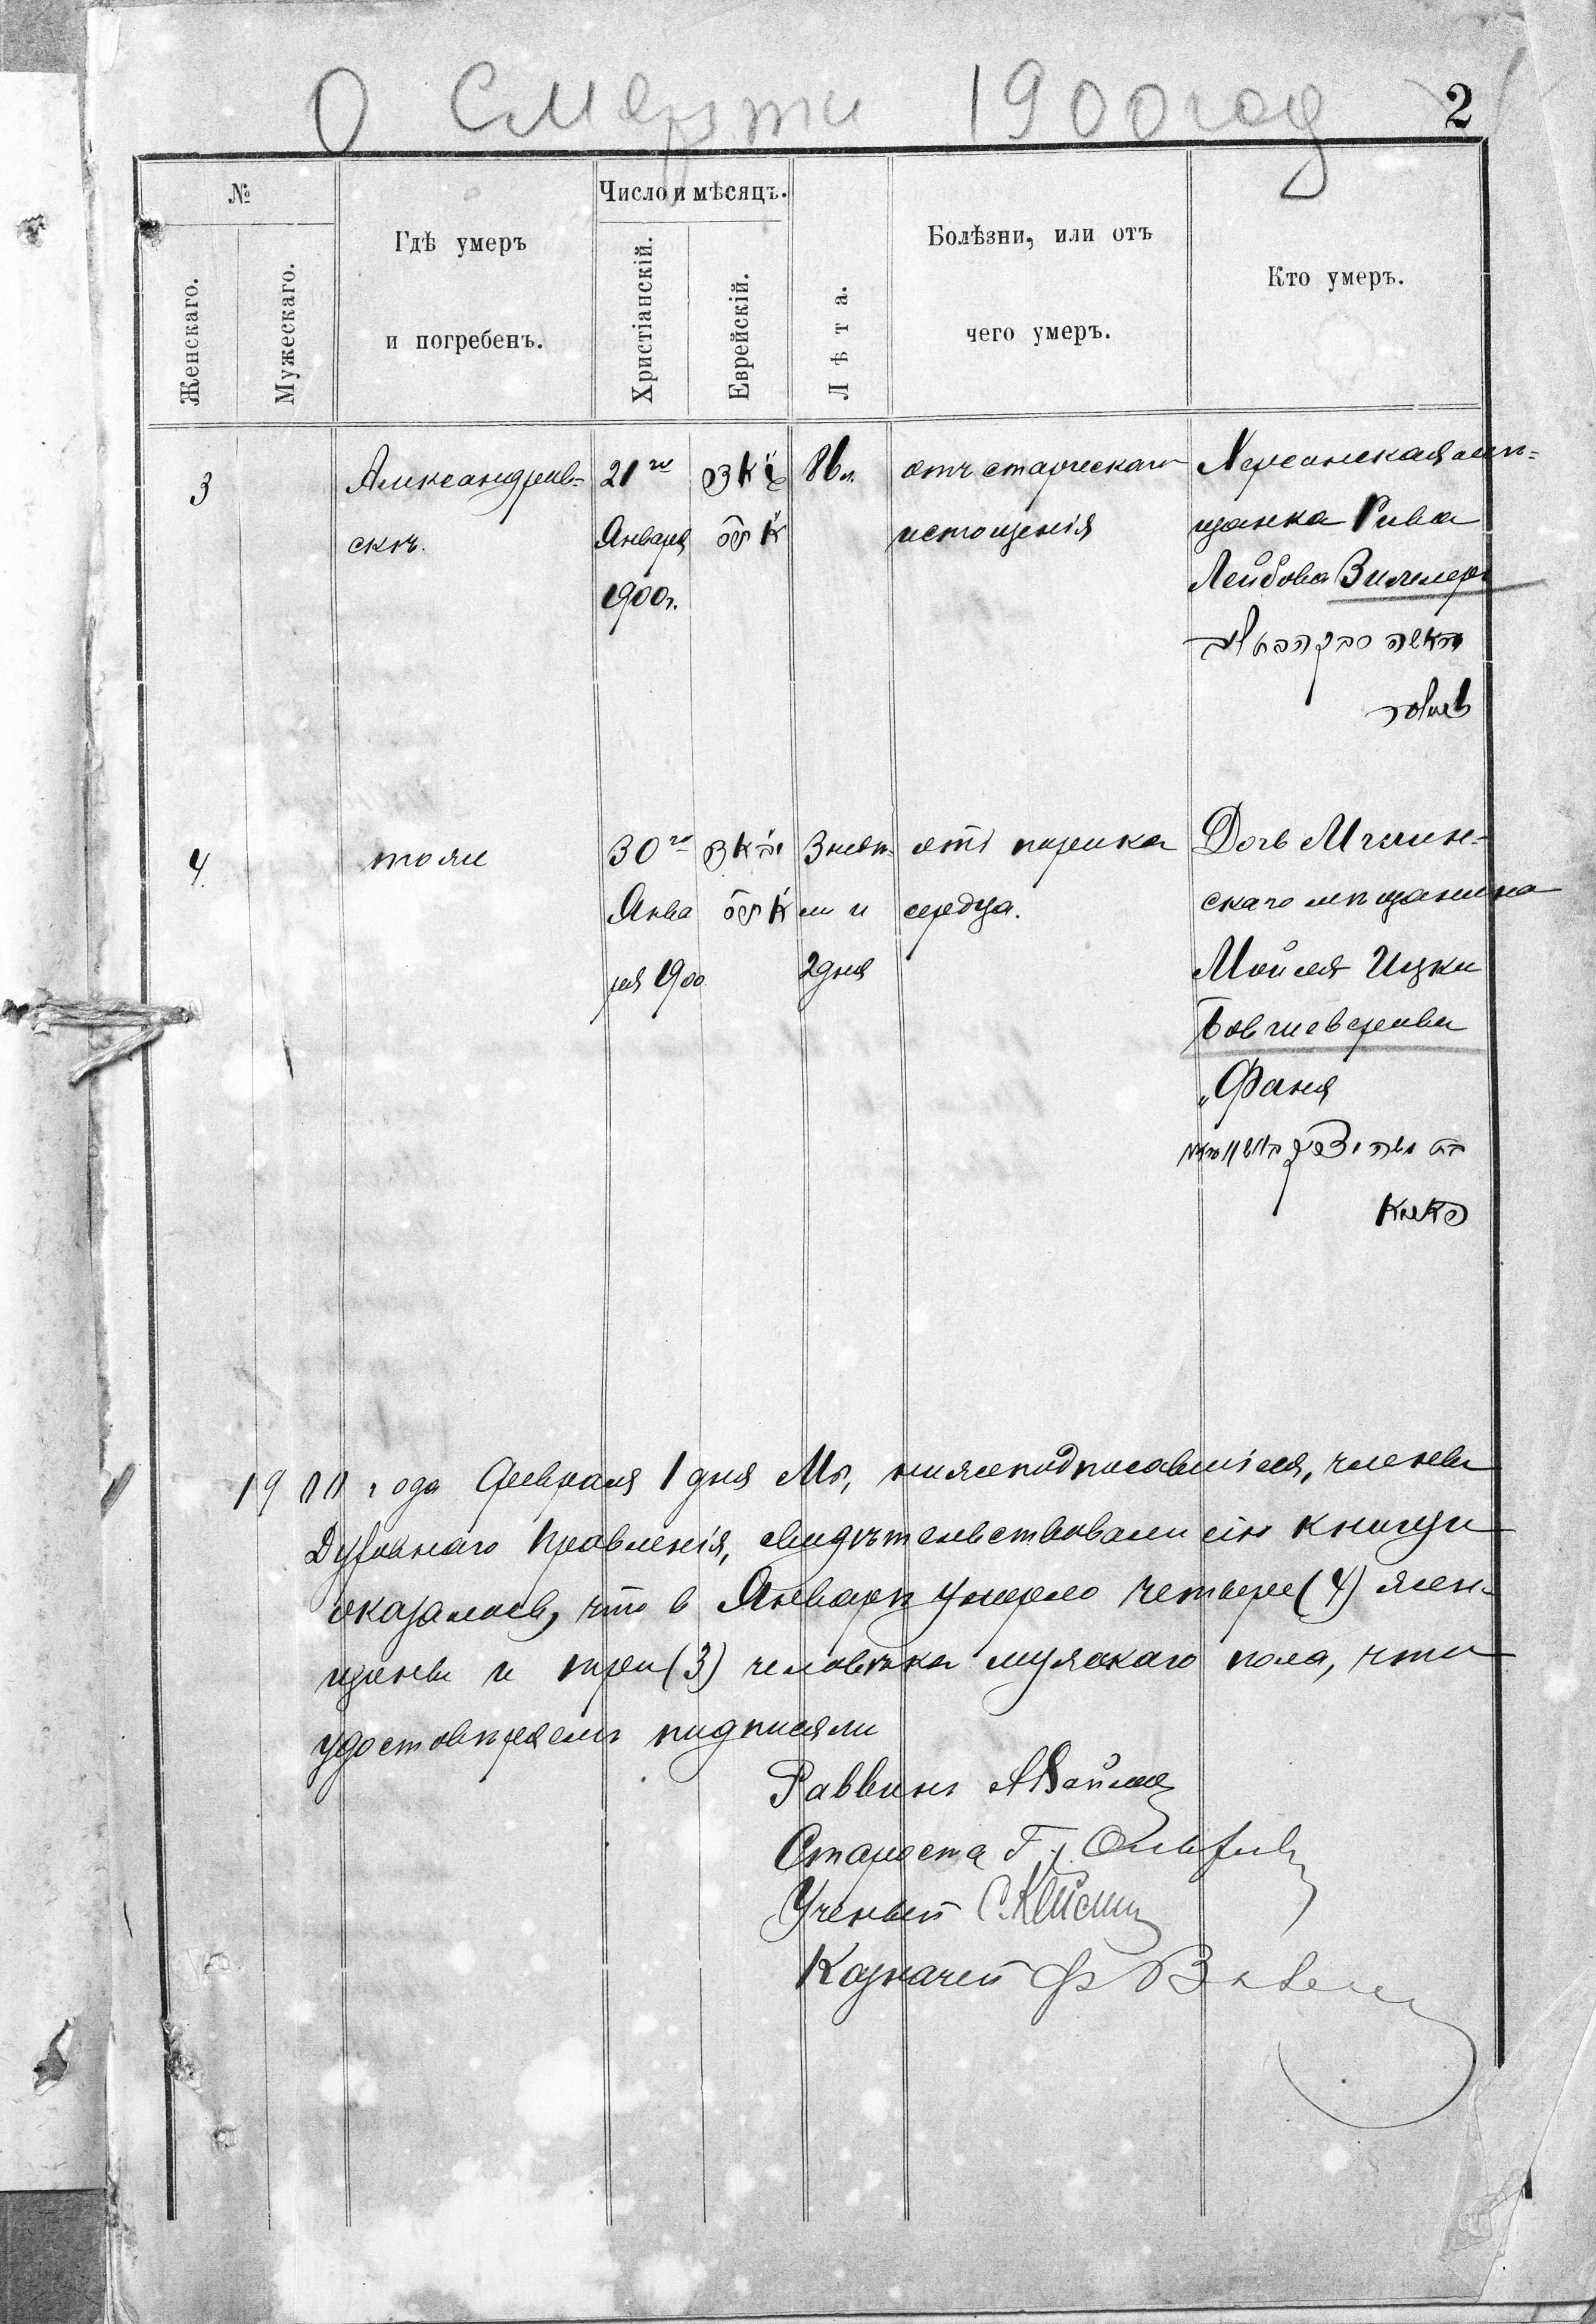 О Смерти 1900 год
2
№
Число и мѣсяцъ.
Женскаго.
Мужескаго.
Гдѣ умеръ
и погребенъ.
Христіанскій.
Еврейскій.
Лѣта.
Болѣзни, или отъ
чего умеръ.
Кто умеръ.
3
Александров-
скъ.
21го
Января
1900г.
86 л.
отъ старческаго
истощенія
Херсонская мѣ-
щанка Рива
Лейбова
4.
тоже
30го
Янва
ря 1900
3 недѣ-
ли и
2 дня
отъ порока
сердца.
Дочь Мглин-
скаго мѣщанина
Мойсея Ицки
„Фаня
1900 года Февраля 1 дня Мы, нижеподписавшіеся, члены
Духовнаго Правленія, свидѣтельствовали сію книгу и
оказалось, что в Январѣ умерло четыре (4) жен-
щины и три (3) человѣка мужскаго пола, что
удостовѣряемъ подписями
Раввинъ
Староста Г.
Ученый С.
Казначей Ф